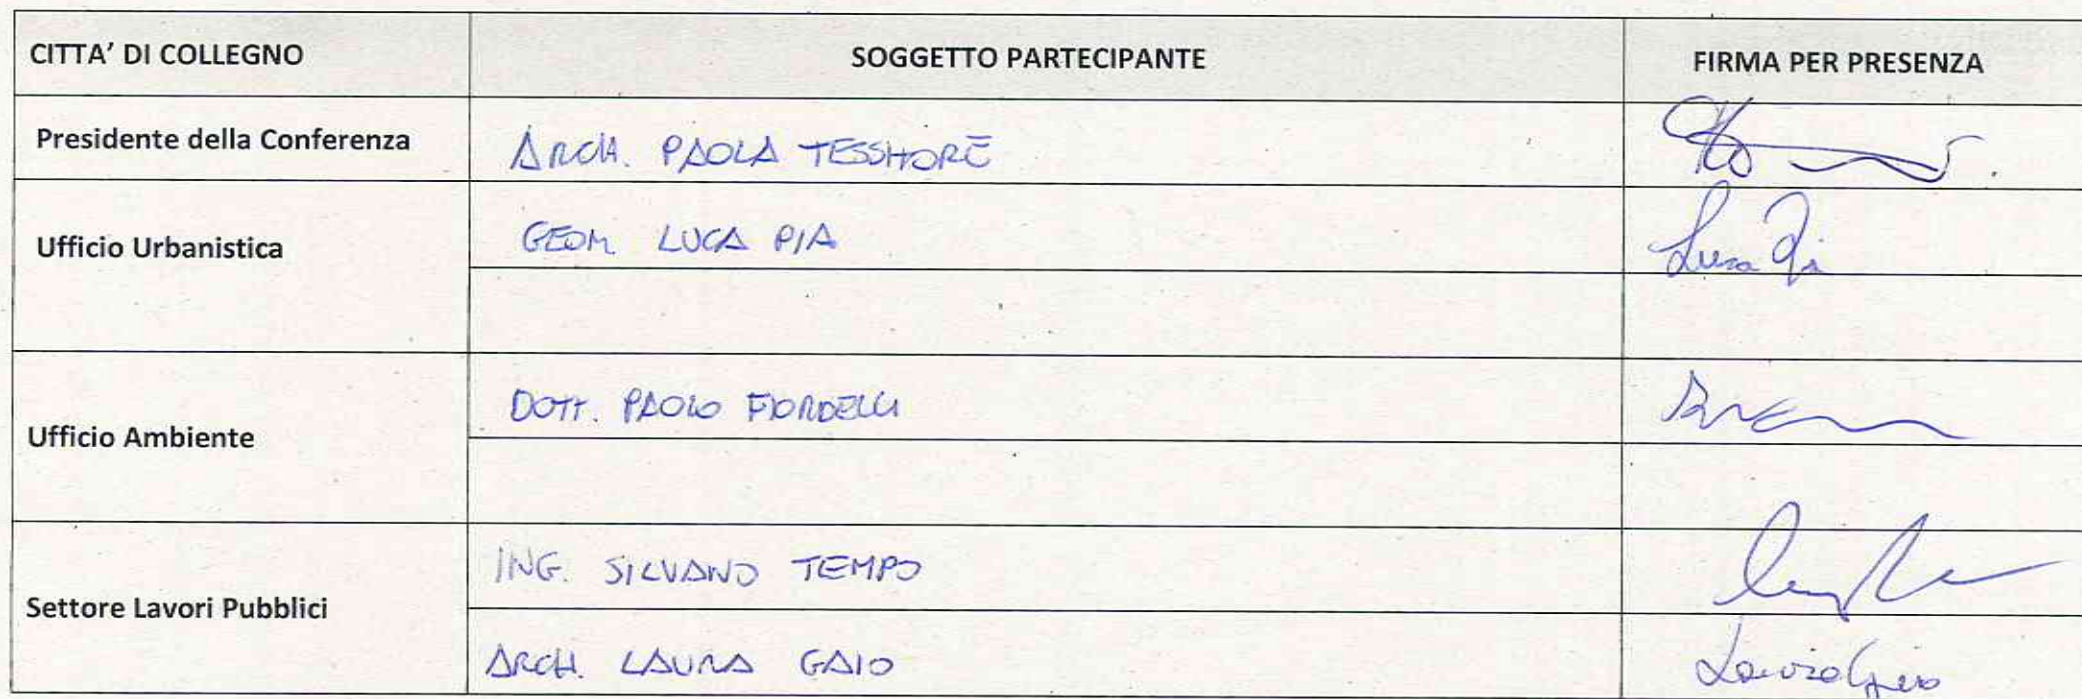 CITTA' DI COLLEGNO SOGGETTO PARTECIPANTE FIRMA PER PRESENZA
Presidente della Conferenza ARCH. PAOLA TESSITORE
Ufficio Urbanistica GEOM. LUCA PIA Luca Pia
Ufficio Ambiente DOTT. PAOLO FIORDELLI
Settore Lavori Pubblici ING. SILVANO TEMPO
ARCH. LAURA GAIO Laura Gaio